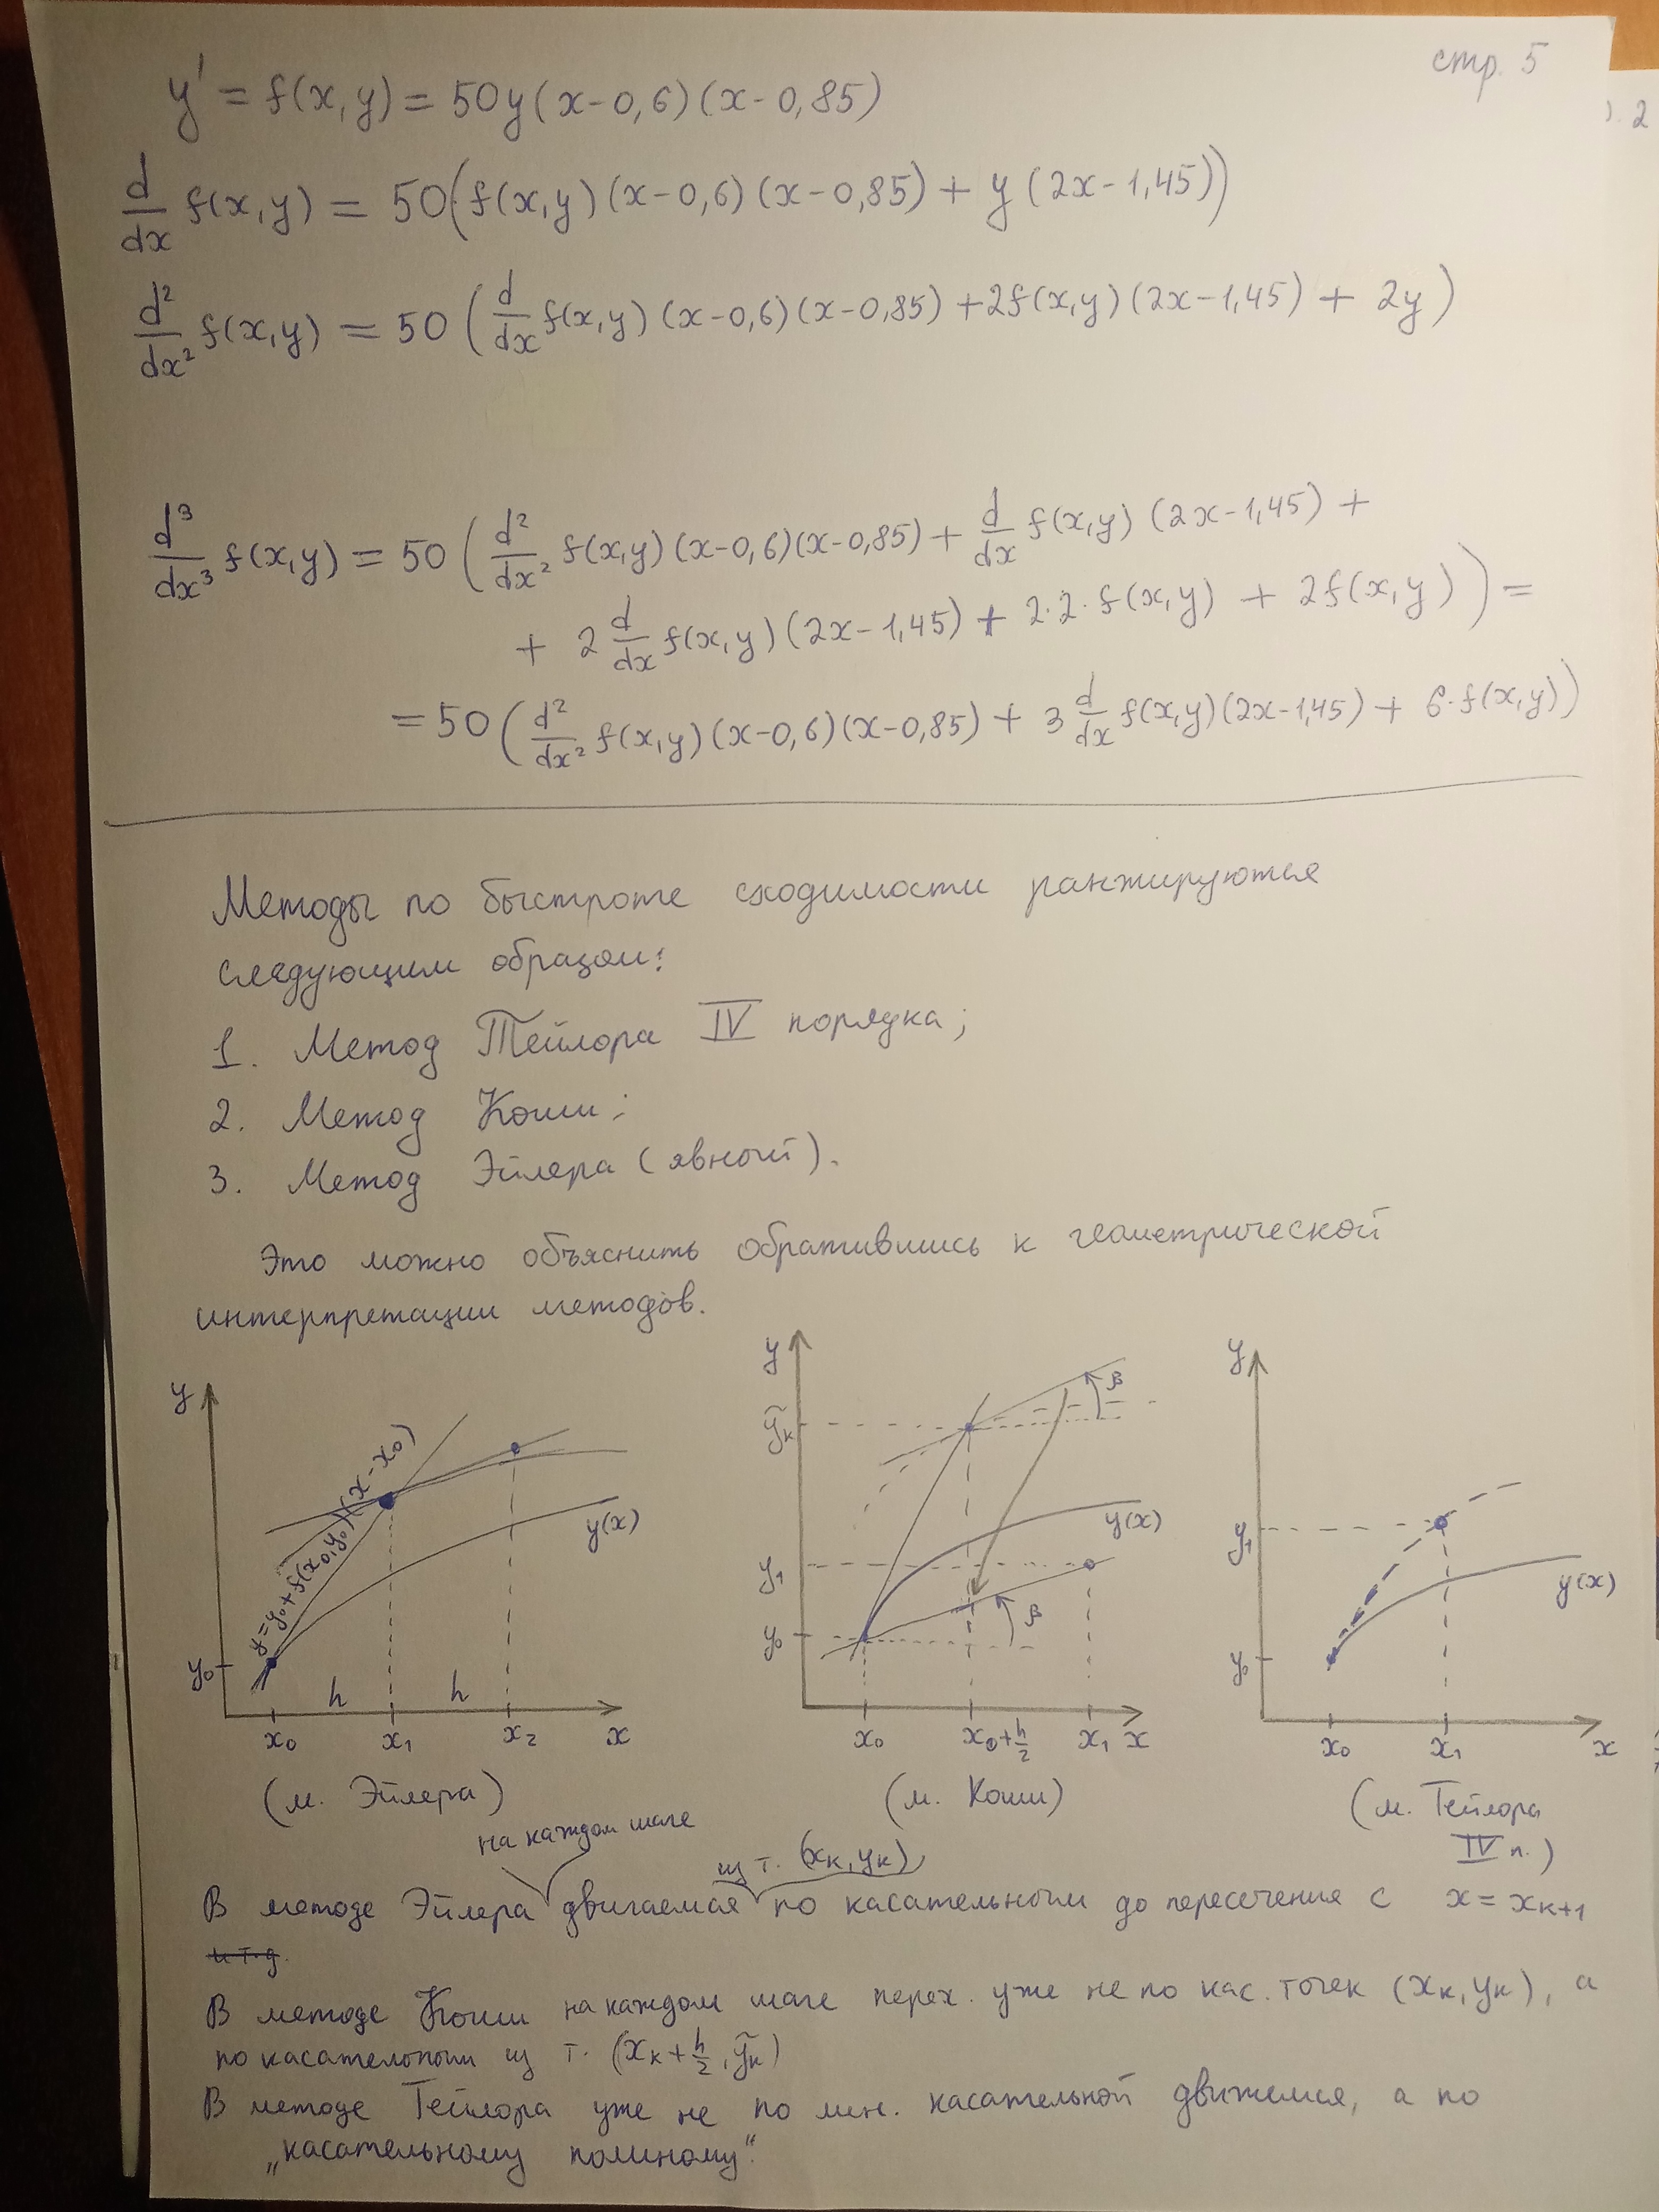 стр. 5
. 2
y' = f(x,y) = 50y(x-0,6)(x-0,85)
d/dx f(x,y) = 50(f(x,y)(x-0,6)(x-0,85) + y(2x-1,45))
d²/dx² f(x,y) = 50(d/dx f(x,y)(x-0,6)(x-0,85) + 2f(x,y)(2x-1,45) + 2y)
d³/dx³ f(x,y) = 50(d²/dx² f(x,y)(x-0,6)(x-0,85) + d/dx f(x,y)(2x-1,45) +
+ 2 d/dx f(x,y)(2x-1,45) + 2·2·f(x,y) + 2f(x,y)) =
= 50(d²/dx² f(x,y)(x-0,6)(x-0,85) + 3 d/dx f(x,y)(2x-1,45) + 6·f(x,y))
Методы по быстроте сходимости ранжируются
следующим образом:
1. Метод Тейлора IV порядка;
2. Метод Коши;
3. Метод Эйлера (явный).
Это можно объяснить обратившись к геометрической
интерпретации методов.
y
y=y₀+f(x₀,y₀)(x-x₀)
y(x)
y₀
h h
x₀ x₁ x₂ x
(м. Эйлера)
y
ỹₖ
β
y(x)
y₁
y₀
β
x₀ x₀+h/2 x₁ x
(м. Коши)
y
y₁
y(x)
y₀
x₀ x₁ x
(м. Тейлора
IV п.)
на каждом шаге
из т. (xₖ,yₖ),
В методе Эйлера двигаемся по касательным до пересечения с x = xₖ₊₁
и т.д.
В методе Коши на каждом шаге перех. уже не по кас. точек (xₖ,yₖ), а
по касательным из т. (xₖ+h/2, ỹₖ)
В методе Тейлора уже не по лин. касательной движемся, а по
„касательному полиному".